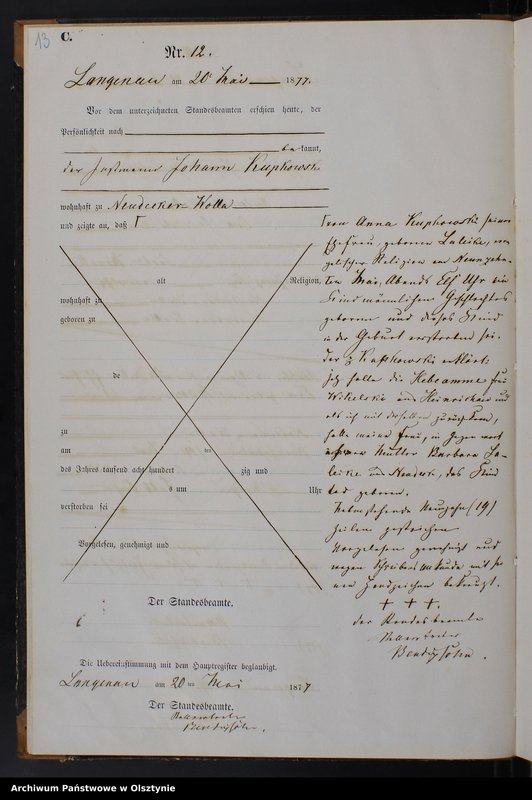 13
C.
Nr. 12.
Langenau am 20ten Mai 1877.
Vor dem unterzeichneten Standesbeamten erschien heute, der
Persönlichkeit nach
be kannt,
der Johann Kupkowski
wohnhaft zu Neudecker-Wolla
und zeigte an, daß
alt Religion,
wohnhaft zu
geboren zu
de
zu
am ten
des Jahres tausend acht hundert zig und
s um Uhr
verstorben sei
Vorgelesen, genehmigt und
Der Standesbeamte.
Die Uebereinstimmung mit dem Hauptregister beglaubigt.
Langenau am 20 ten Mai 1877
Der Standesbeamte.
Frau Anna Kupkowski seine
Ehefrau geborene
Religion am Neunzehn-
ten Mai, Abends Elf Uhr ein
Kind männlichen Geschlechtes
geboren und dieses Kind
in der Geburt verstorben sei.
Der Kupkowski erklärt:
ich holte die Hebeamme Frau
und
als ich mit derselben zurückkam,
hatte meine Frau, in Gegenwart
Mutter Barbara
das Kind
tod geboren.
Nebenstehende Neunzehn (19)
Zeilen gestrichen
Vorgelesen genehmigt und
wegen Schreibensunkunde mit sei-
nem Handzeichen bekreuzt.
+ + +.
der Standesbeamte
Archiwum Państwowe w Olsztynie